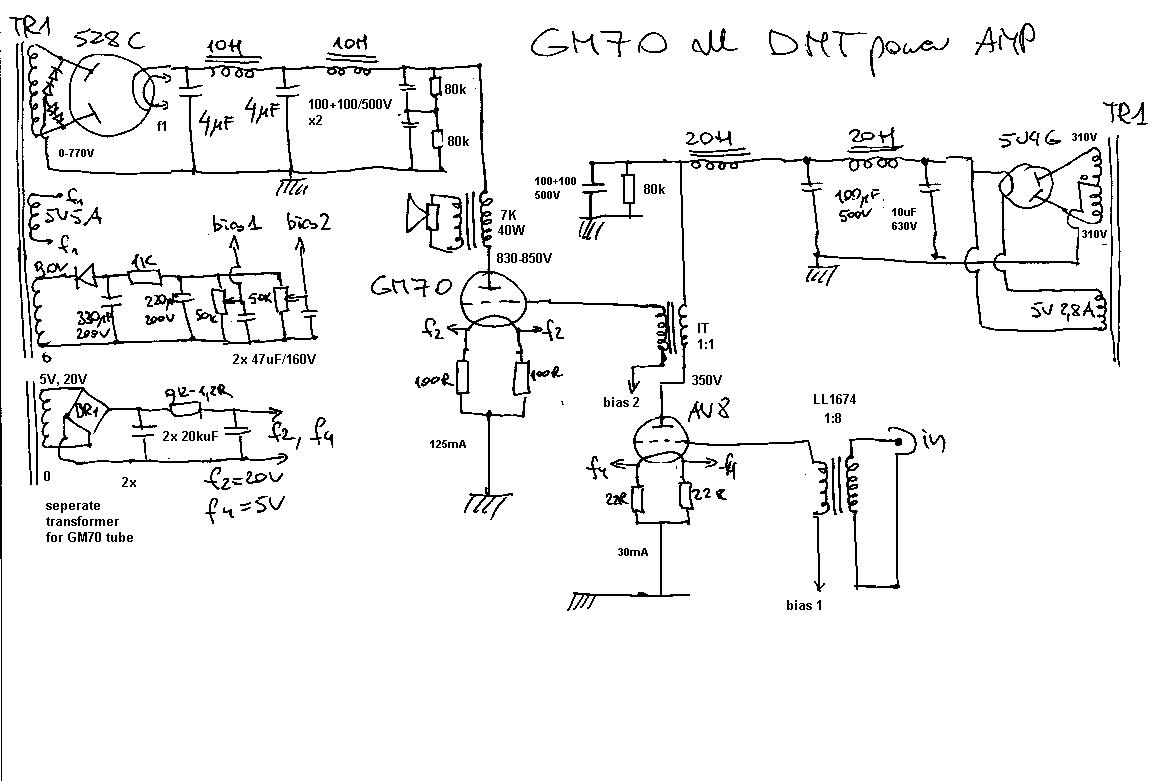 GM70 all DMT power AMP
TR1
528C
10H
10H
f1
4µF
4µF
100+100/500V
x2
80k
80k
0-770V
f1
5V5A
f1
bias1
bias2
1K
330µF
200V
220µF
200V
50K
50K
0
2x 47uF/160V
7K
40W
830-850V
GM70
f2
f2
100R
100R
125mA
5V, 20V
DR1
2x 20kuF
f2, f4
0
2x
f2=20V
f4=5V
seperate
transformer
for GM70 tube
TR1
20H
20H
5U4G
310V
100+100
500V
80k
100µF
500V
10uF
630V
310V
5V 2,8A
IT
1:1
350V
bias 2
AV8
LL1674
1:8
in
f4
f4
22R
22R
30mA
bias 1